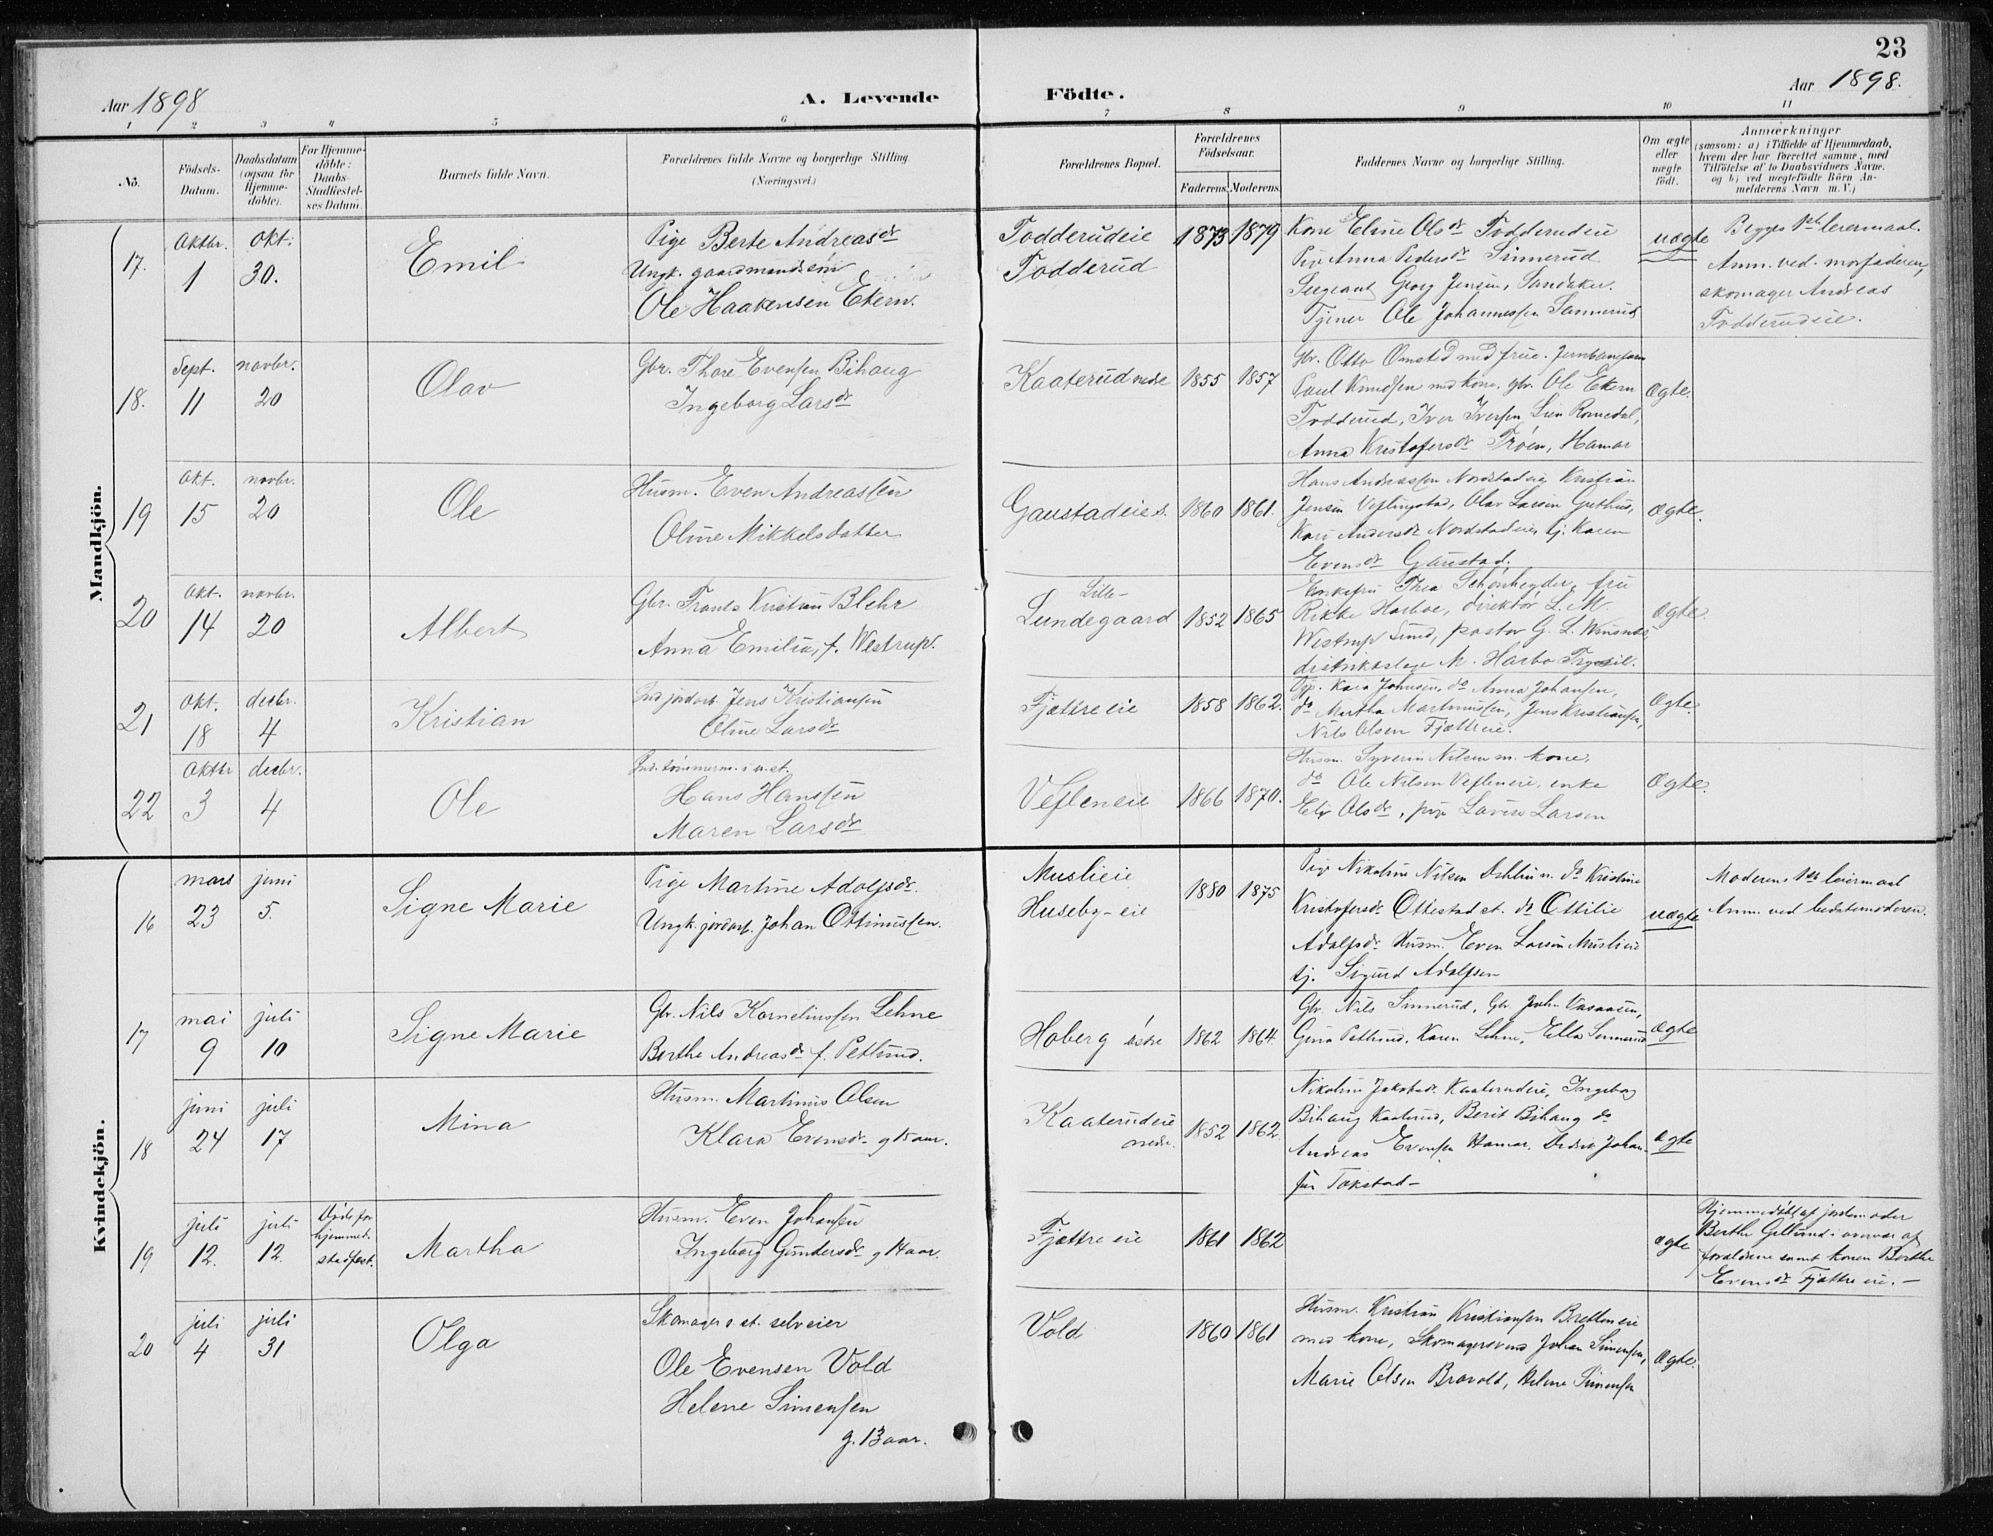 23
Aar 1898
A. Levende
Födte.
Aar 1898.
1 2 3 4 5 6 7 8 9 10 11
No.
Födsels-
Datum.
Daabsdatum
(ogsaa for
Hjemme-
döbte).
For Hjemme-
döbte:
Daabs-
Stadfæstel-
ses Datum.
Barnets fulde Navn.
Forældrenes fulde Navne og borgerlige Stilling.
(Næringsvei.)
Forældrenes Bopæl.
Forældrenes
Födselsaar.
Faderens. Moderens.
Faddernes Navne og borgerlige Stilling.
Om ægte
eller
uægte
födt.
Anmærkninger
(saasom: a) i Tilfælde af Hjemmedaab,
hvem der har forrettet samme, med
Tilföielse af to Daabsvidners Navne,
og b) ved uægtefödte Börn An-
melderens Navn m. V.)
Mandkjön.
17.
Oktbr.
1
Okt.
30.
Emil
Pige Berte Andreasdr
Ungk. gaardmandssön
Ole Haakensen Ekern.
Todderudeie
Todderud
1873 1879
Kone Eline Olsdr Todderudeie
Pige Anna Pedersdr Sinnerud
Sergeant Georg Jensen, Sandaker.
Tjener Ole Johannessen Sannerud
uægte
Begges 1ste leiermaal.
Anm. ved morfaderen,
skomager Andreas
Todderudeie.
18.
Sept.
11
novbr.
20
Olav
Gbr. Thore Evensen Bihaug
Ingeborg Larsdr
Kaaterud nedre
1855 1857
Gbr. Otto Omsted med frue.
Paul Knudsen med kone, gbr. Ole Ekern
Todderud, Iver Iversen Lien Romedal,
Anna Kristofersdr Tröen, Hamar
Ægte.
19
Okt.
15
novbr.
20
Ole
Husm. Even Andreassen
Oline Mikkelsdatter
Gaustadeie s.
1860 1861.
Hans Andreassen Nordstadeie, Kristian
Jensen Veflingstad, Olav Larsen Grethus,
Kari Andersdr Nordstadeie, tj. Karen
Evensdr Gaustad.
Ægte.
20
Okt.
14
novbr.
20
Albert
Gbr. Frants Kristian Blehr
Anna Emilia, f. Westrup.
Lille-
Lundegaard
1852 1865
Enkefru Thea Schönheyder, fru
Rikke Harboe, direktör L. M.
Westrup Lund, pastor G. L.
distriktslæge M. Harbo Trysil.
Ægte.
21
Okt.
18
decbr.
4
Kristian
Ind. jordarb. Jens Kristiansen
Oline Larsdr
Fjættreeie
1858 1862.
Pige Kaia Johnsen, do Anna Johansen,
do Martha Martinussen, Jens Kristiansen,
Nils Olsen Fjættreeie.
Ægte.
22
Oktbr
3
decbr.
4
Ole
Ind. tömmerm. i v. et.
Hans Hanssen
Maren Larsdr
Vefleneie
1866 1870.
Husm. Syverin Nilsen m. kone,
do Ole Nilsen Vefleneie, enke
Eli Olsdr, pige Lovise Larsen
Ægte.
Kvindekjön.
16
mars
23
juni
5.
Signe Marie
Pige Martine Adolfsdr.
Ungk. jordarb. Johan Ottinussen.
Muslieie
Huseby-eie
1880 1875
Pige Nikoline Nilsen do Kristine
Kristofersdr Ottestad st. do Ottilie
Adolfsdr Husm. Even Larsen Muslieie
tj. Sigurd Adolfsen
uægte
Moderens 1ste leiermaal
Anm. ved bedstemoderen.
17
mai
9
juli
10
Signe Marie
Gbr. Nils Korneliussen Lehne
Berthe Andreasdr f. Petlund.
Hoberg östre
1862 1864.
Gbr. Nils Sinnerud, Gbr. Joh. Vasaasen,
Gina Petlund, Karen Lehne, Ella Sinnerud
Ægte
18
juni
24
juli
17
Mina
Husm. Martinus Olsen
Klara Evensdr. g. 15 aar.
Kaaterudeie
nedre.
1852 1862.
Nikoline Jakobsdr. Kaaterudeie, Ingeborg
Bihaug Kaaterud, Berit Bihaug do
Andreas Evensen Hamar, Johan-
sen Tokstad –
ægte
19
juli
12.
juli
12.
Döde för
hjemmed.
stadfæst.
Martha
Husm. Even Johansen
Ingeborg Gundersdr. g. 14 aar.
Fjættreeie
1861 1862
ægte
Hjemmedöbt af jordemoder
Berthe Gillund i overvær af
forældrene samt konen Berthe
Evensdr Fjættreeie. –
20
juli
4
juli
31
Olga
Skomager st. selveier
Ole Evensen Vold
Helene Simensen
g. 13 aar.
Vold
1860 1861
Husm. Kristian Kristiansen Bretteneie
med kone, Skomagersvend Johan Simensen,
Marie Olsen Bravold, Helene Simensen
Ægte.